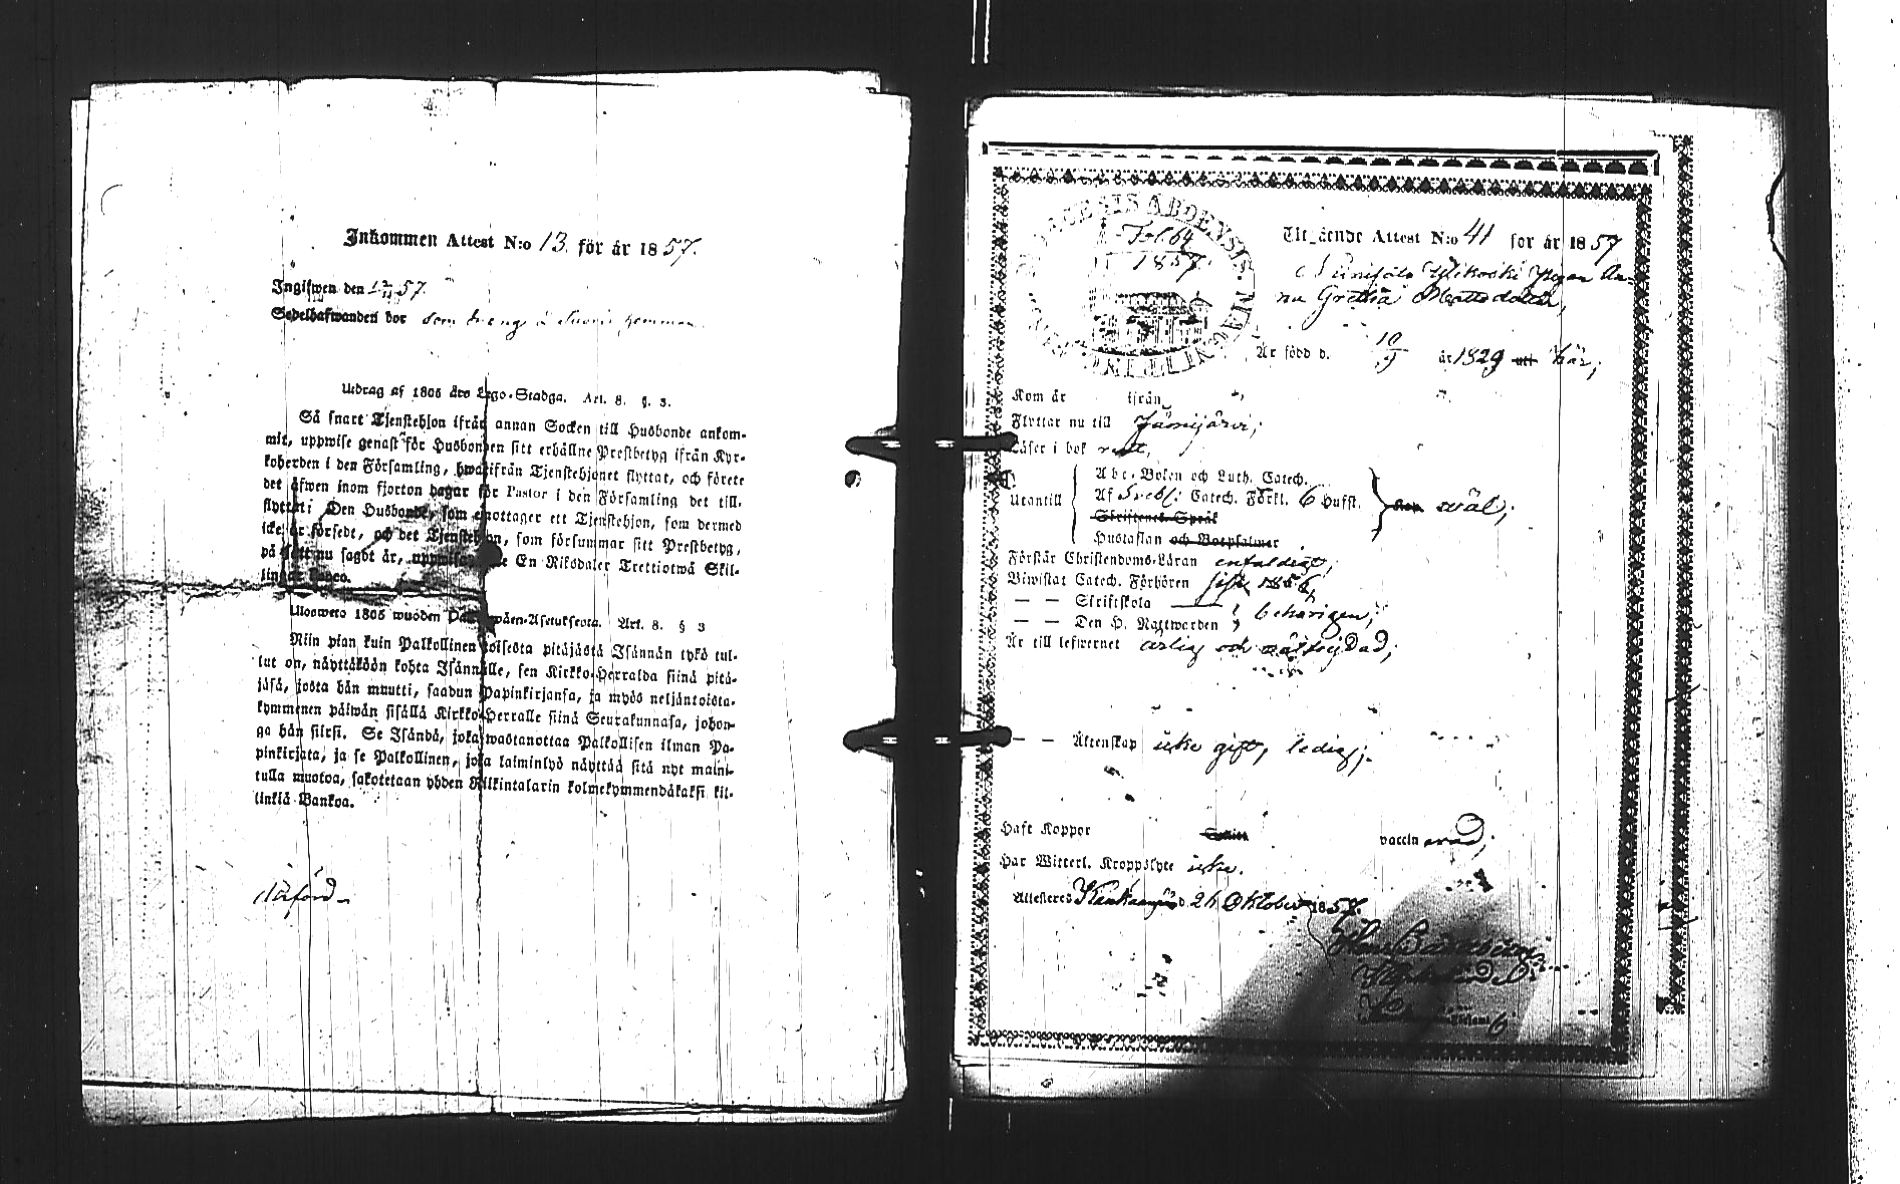 Inkommen Attest N:o 13. för år 1857.
Ingifwen den 57.
Sedelhafwanden bor som dreng i Suoni hemman.
Utdrag af 1805 års Lego-Stadga. Art. 8. §. 3.
Så snart Tjenstehjon ifrån annan Socken till Husbonde ankom-
mit, uppwise genast för Husbonden sitt erhållne Prestbetyg ifrån Kyr-
koherden i den Församling, hwarifrån Tjenstehjonet flyttat, och förete
det äfwen inom fjorton dagar för Pastor i den Församling det till-
flyttat; Den Husbonde, som emottager ett Tjenstehjon, som dermed
icke är försedt, och det Tjenstehjon, som försummar sitt Prestbetyg,
på sätt nu sagdt är, uppwisa, böte En Riksdaler Trettiotwå Skil-
lingar Banco.
Ulosweto 1805 wuoden Palkkawäen-Asetuksesta. Art. 8. § 3
Niin pian kuin Palkollinen toisesta pitäjästä Isännän tykö tul-
lut on, näyttäköön kohta Isännälle, sen Kirkko-Herralda siinä pitä-
jäsä, josta hän muutti, saadun Papinkirjansa, ja myös neljäntoista-
kymmenen päiwän sisällä Kirkko-Herralle siinä Seurakunnasa, johon-
ga hän siirsi. Se Isändä, joka wastanottaa Palkollisen ilman Pa-
pinkirjata, ja se Palkollinen, joka laiminlyö näyttää sitä nyt maini-
tulla muotoa, sakotetaan yhden Riikintalarin kolmekymmendäkaksi kil-
lingiä Bankoa.
Införd
DIOECESIS ABOENSIS
Fol. 64
1857.
Utgående Attest N:o 41 för år 1857
Ylikoski Pigan An-
na Gretha Mattsdotter,
Är född d. 10/9 år 1829 här;
Kom år ifrån
Flyttar nu till Jämijärvi;
Läser i bok rent,
Utantill
Abc-Boken och Luth. Catech.
Af Svebel: Catech. Förkl. 6 Hufst.
Skriftenes Språk
Hustaflan och Botpsalmer
wäl;
Förstår Christendoms-Läran enfaldigt;
Biwistat Catech. Förhören 1856,
— — Skriftskola
— — Den H. Nattwarden behörigen;
Är till lefwernet ärlig och wälfrejdad;
— — Äktenskap icke gift, ledig;
Haft Koppor vaccinerad;
Har Witterl. Kroppslyte icke.
Attesteras Kankaanpää d. 26 Oktober 1857.